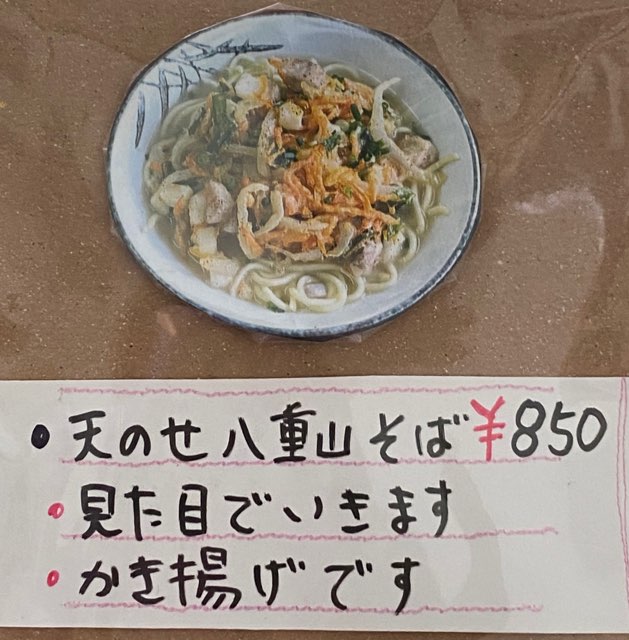 • 天のせ八重山そば¥850
• 見た目でいきます
• かき揚げです